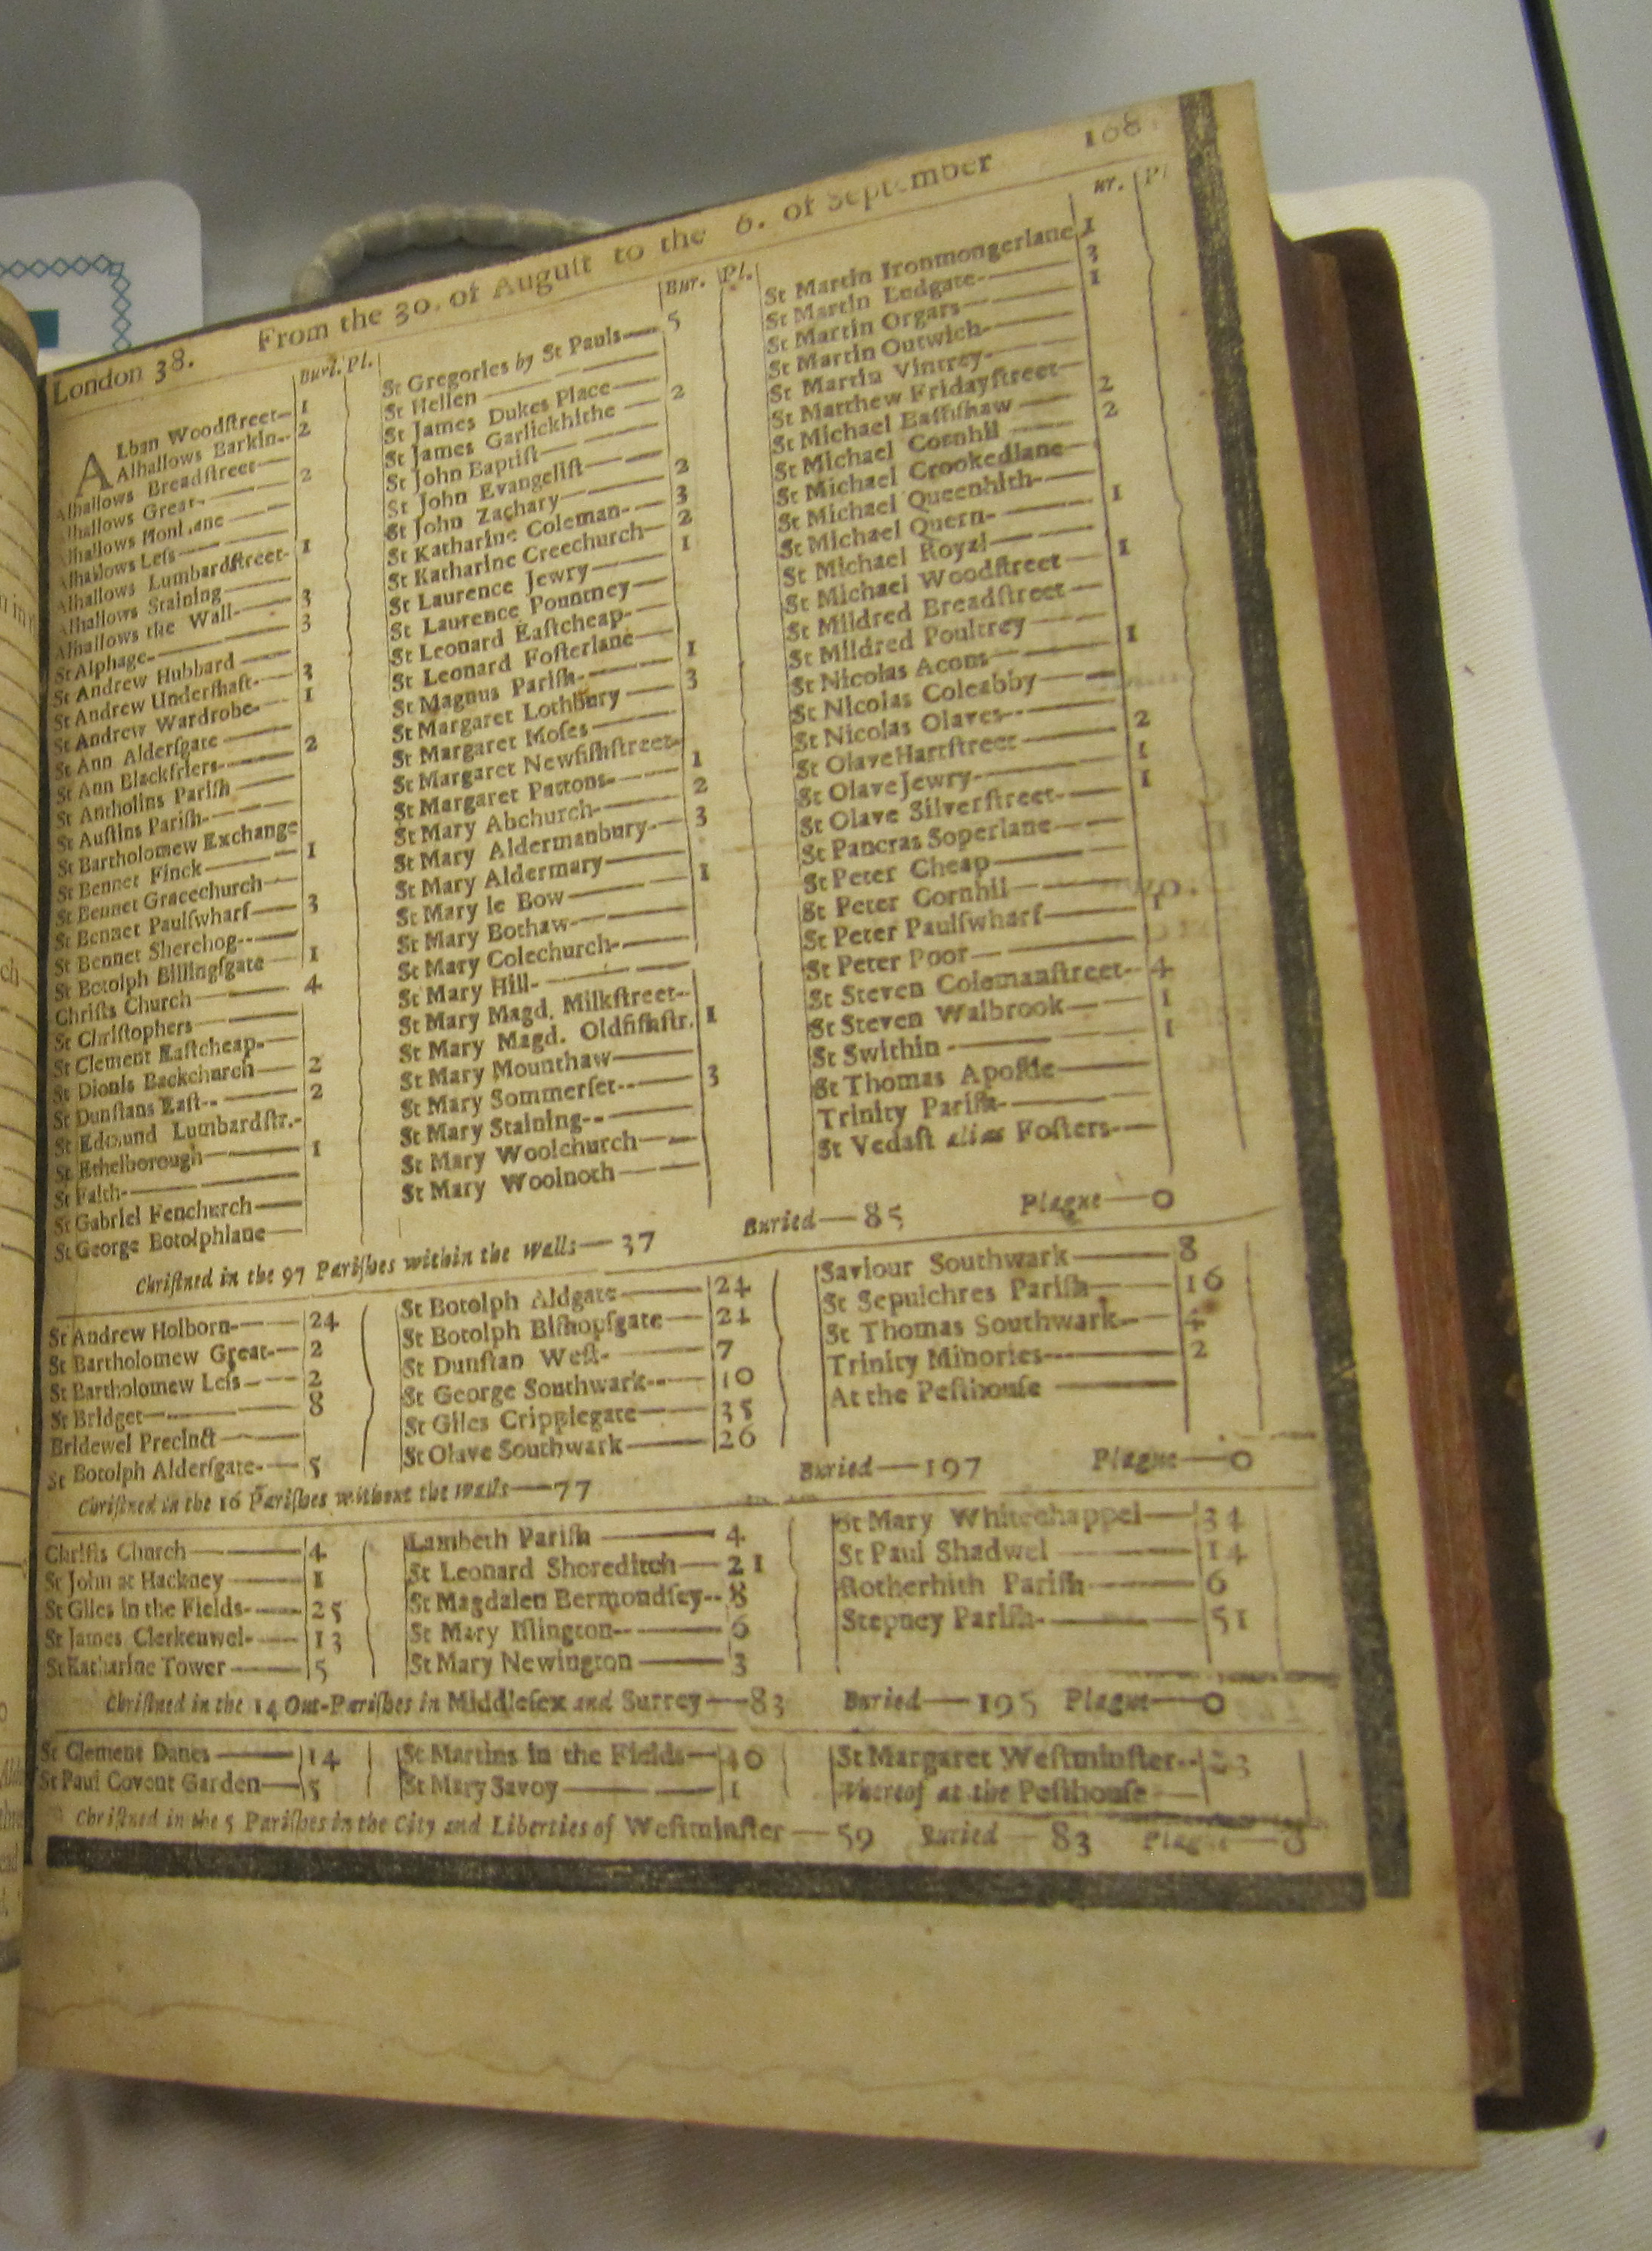 London 38. From the 30. of August to the 6. of September 168
Buri. Pl.
ALban Woodſtreet— 1
Alhallows Barkin-- 2
Alhallows Breadſtreet—
Alhallows Great- —— 2
Alhallows HonLane ——
Alhallows Leſs——
Alhallows Lumbardſtreet- 1
Alhallows Staining——
Alhallows the Wall-—— 3
St Alphage-—— 3
St Andrew Hubbard ——
St Andrew Underſhaft-— 3
St Andrew Wardrobe-— 1
St Ann Alderſgate ——
St Ann Blackfriers-—— 2
St Antholins Pariſh ——
St Auſtins Pariſh-——
St Bartholomew Exchange
St Bennet Finck —— 1
St Bennet Gracechurch—
St Bennet Paulſwharf— 3
St Bennet Sherehog--—
St Botolph Billingſgate — 1
Chriſts Church —— 4
St Chriſtophers ——
St Clement Eaſtcheap-—
St Dionis Backchurch— 2
St Dunſtans Eaſt-- —— 2
St Edmund Lumbardſtr.-
St Ethelborough—— 1
St Faith-———
St Gabriel Fenchurch—
St George Botolphlane—
Bur. Pl.
St Gregories by St Pauls— 5
St Hellen ———
St James Dukes Place—
St James Garlickhithe — 2
St John Baptiſt———
St John Evangeliſt——
St John Zachary—— 2
St Katharine Coleman-— 3
St Katharine Creechurch— 2
St Laurence Jewry—— 1
St Laurence Pountney—
St Leonard Eaſtcheap-—
St Leonard Foſterlane—
St Magnus Pariſh-—— 1
St Margaret Lothbury — 3
St Margaret Moſes——
St Margaret Newfiſhſtreet-
St Margaret Pattons-— 1
St Mary Abchurch-—— 2
St Mary Aldermanbury-— 3
St Mary Aldermary——
St Mary le Bow——— 1
St Mary Bothaw-——
St Mary Colechurch-——
St Mary Hill-———
St Mary Magd. Milkſtreet--
St Mary Magd. Oldfiſhſtr. 1
St Mary Mounthaw——
St Mary Sommerſet--— 3
St Mary Staining--——
St Mary Woolchurch——
St Mary Woolnoth——
ur. Pl
St Martin Ironmongerlane 1
St Martin Ludgate-—— 3
St Martin Orgars—— 1
St Martin Outwich-——
St Martin Vintrey-——
St Matthew Fridayſtreet—
St Michael Baſſiſhaw — 2
St Michael Cornhil —— 2
St Michael Crookedlane—
St Michael Queenhith-—
St Michael Quern-—— 1
St Michael Royal———
St Michael Woodſtreet — 1
St Mildred Breadſtreet —
St Mildred Poultrey ——
St Nicolas Acons—— 1
St Nicolas Coleabby——
St Nicolas Olaves--——
St Olave Hartſtreet —— 2
St Olave Jewry-——— 1
St Olave Silverſtreet-— 1
St Pancras Soperlane——
St Peter Cheap———
St Peter Cornhil———
St Peter Paulſwharf—— 1
St Peter Poor———
St Steven Colemanſtreet-- 4
St Steven Walbrook—— 1
St Swithin ——— 1
St Thomas Apoſtle——
Trinity Pariſh-———
St Vedaſt alias Foſters-—
Chriſtned in the 97 Pariſhes within the Walls—37 Buried—85 Plague—0
St Andrew Holborn-—— 24
St Bartholomew Great-— 2
St Bartholomew Leſs—— 2
St Bridget——— 8
Bridewel Precinct——
St Botolph Alderſgate-— 5
St Botolph Aldgate—— 24
St Botolph Biſhopſgate—
St Dunſtan Weſt-—— 7
St George Southwark--— 10
St Giles Cripplegate—— 35
St Olave Southwark —— 26
Saviour Southwark —— 8
St Sepulchres Pariſh—— 16
St Thomas Southwark-— 4
Trinity Minories-—— 2
At the Peſthouſe ——
Chriſtned in the 16 Pariſhes without the Walls—77 Buried—197 Plague—0
Chriſts Church——— 4
St John at Hackney —— 1
St Giles in the Fields-—— 25
St James Clerkenwel-—— 13
St Katharine Tower —— 5
Lambeth Pariſh —— 4
St Leonard Shoreditch— 21
St Magdalen Bermondſey-- 8
St Mary Iſlington--—— 6
St Mary Newington —— 3
St Mary Whitechappel— 34
St Paul Shadwel —— 14
Rotherhith Pariſh—— 6
Stepney Pariſh-——— 51
Chriſtned in the 14 Out-Pariſhes in Middleſex and Surrey—83 Buried—195 Plague—0
St Clement Danes —— 14
St Paul Covent Garden— 5
St Martins in the Fields— 40
St Mary Savoy——— 1
St Margaret Weſtminſter-- 23
Whereof at the Peſthouſe —
Chriſtned in the 5 Pariſhes in the City and Liberties of Weſtminſter —59 Buried—83 Plague—0